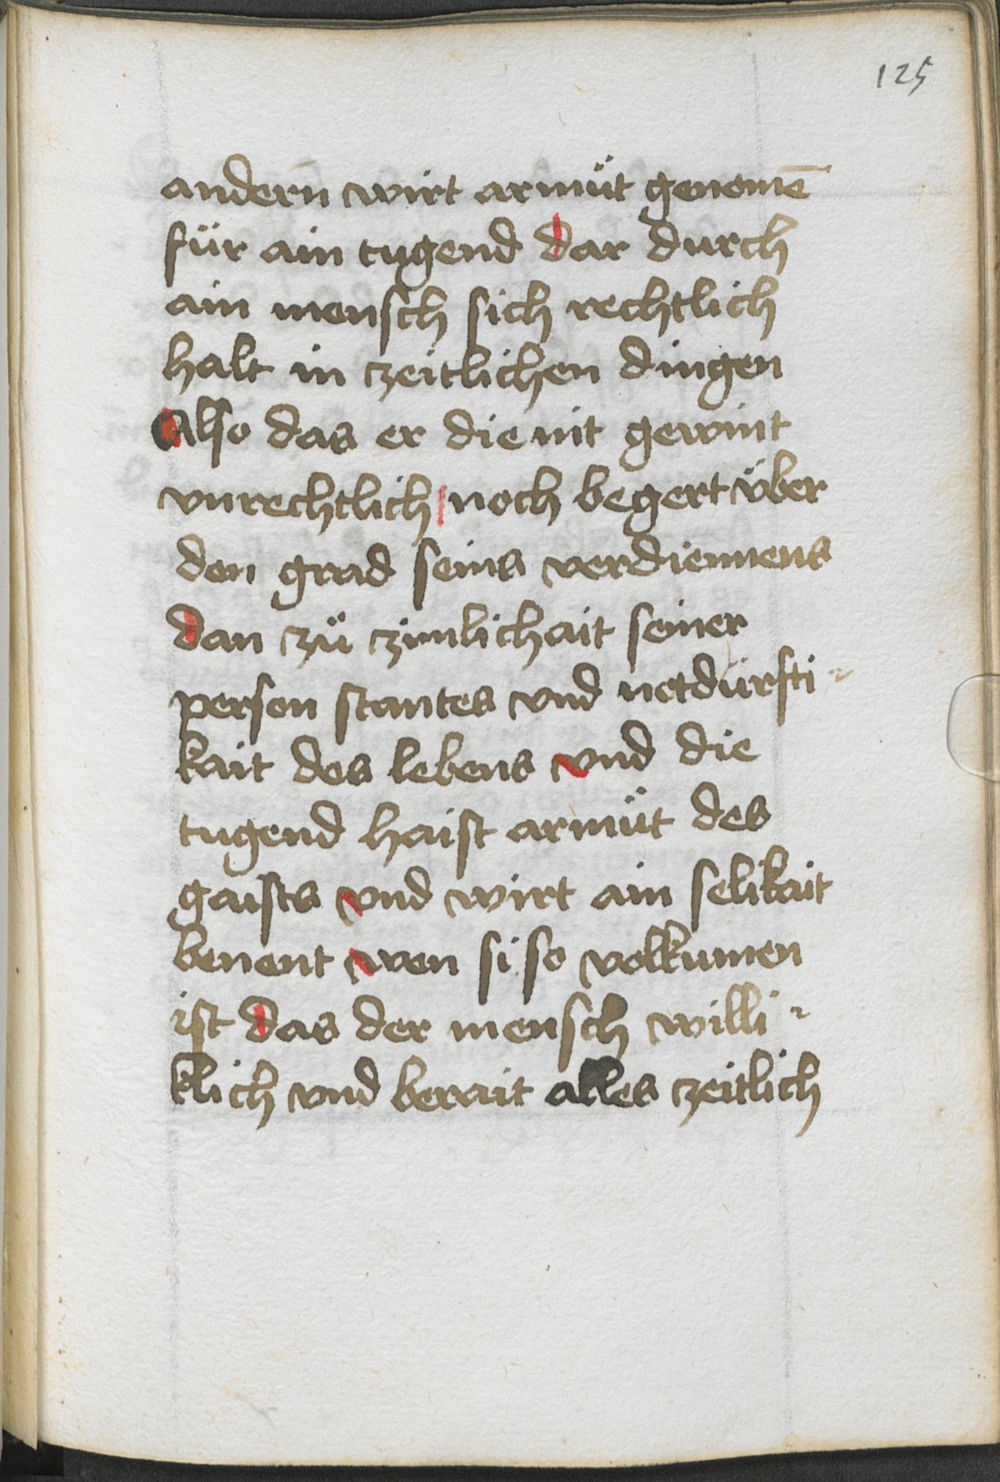 125
andern wirt armüt genomē
für ain tugend dar durch
ain mensch sich rechtlich
halt in zeitlichen dingen
Also das er die nit gewint
vnrechtlich noch begert über
den grad seins verdiennens
dan zü zimlichait seiner
person stantes vnd notdürfti-
kait des lebens vnd die
tugend haist armüt des
gaists vnd wirt ain selikait
benent wen si so volkumen
ist das der mensch willi-
klich vnd berait alles zeitlich